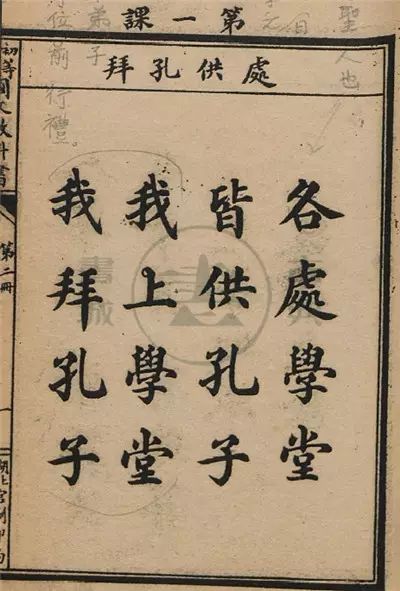 第一課
處供孔拜
各處學堂
皆供孔子
我上學堂
我拜孔子
初等國文教科書
第二冊
聖人也
弟子
位前行禮。